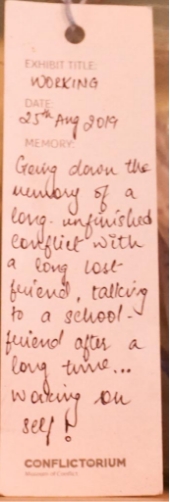 EXHIBIT TITLE:
WORKING
DATE:
25th Aug 2019
MEMORY:
Going down the
memory of a
long-unfinished
conflict with
a long lost
friend, talking
to a school-
friend after a
long time...
working on
self!
CONFLICTORIUM
Museum of Conflict